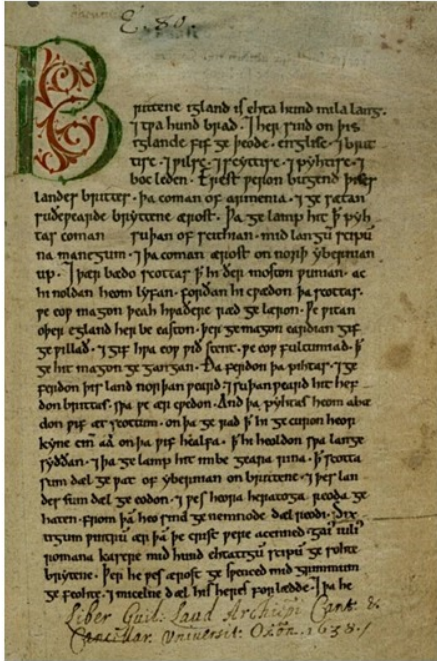 E. 80.
Brittene igland is ehta hund mila lang.
⁊ tƿa hund brad. ⁊ her sind on þis
iglande fif ge þeode. englisc. ⁊ brit
tisc. ⁊ ƿilsc. ⁊ scyttisc. ⁊ pyhtisc. ⁊
boc leden. Erest ƿeron bugend þises
landes brittes. þa coman of armenia. ⁊ ge sætan
suðeƿearde bryttene ærost. Þa ge lamp hit ꝥ pyh
tas coman suþan of scithian. mid langū scipū
na manegum. ⁊ þa coman ærost on norþ ybernian
up. ⁊ þær bædo scottas ꝥ hi ðer moston ƿunian. ac
hi noldan heom lyfan. forðan hi cƿædon þa scottas.
ƿe eoƿ magon þeah hƿaðere ræd ge læron. Ƿe ƿitan
oþer egland her be easton. þer ge magon eardian gif
ge ƿillað. ⁊ gif hƿa eoƿ ƿið stent. ƿe eoƿ fultumiað. ꝥ
ge hit magon ge gangan. Ða ferdon þa pihtas. ⁊ ge
ferdon þis land norþan ƿeard. ⁊ suþan ƿeard hit hef
don brittas. sƿa ƿe ær cƿedon. And þa pyhtas heom abæ
don ƿif æt scottum. on þa ge rad ꝥ hi ge curon heor
kyne cinn aa on þa ƿif healfa. ꝥ hi heoldon sƿa lange
syððan. ⁊ þa ge lamp hit imbe geara rina. ꝥ scotta
sum dæl ge ƿat of ybernian on brittene. ⁊ þes lan
des sum dæl ge eodon. ⁊ ƿes heora heratoga reoda ge
haten. from þā heo sind ge nemnode dæl reodi. Six
tigum ƿintrū ær þā þe crist ƿere acenned. gai' iuli'
romana kasere mid hund ehtatigū scipū ge sohte
brytene. Þer he ƿes ærost ge sƿenced mid grimmum
ge feohte. ⁊ micelne dæl his heres for lædde. ⁊ þa he
Liber Guil: Laud Archiepī Cant. &
Cancellar. Universit: Oxōn. 1638.